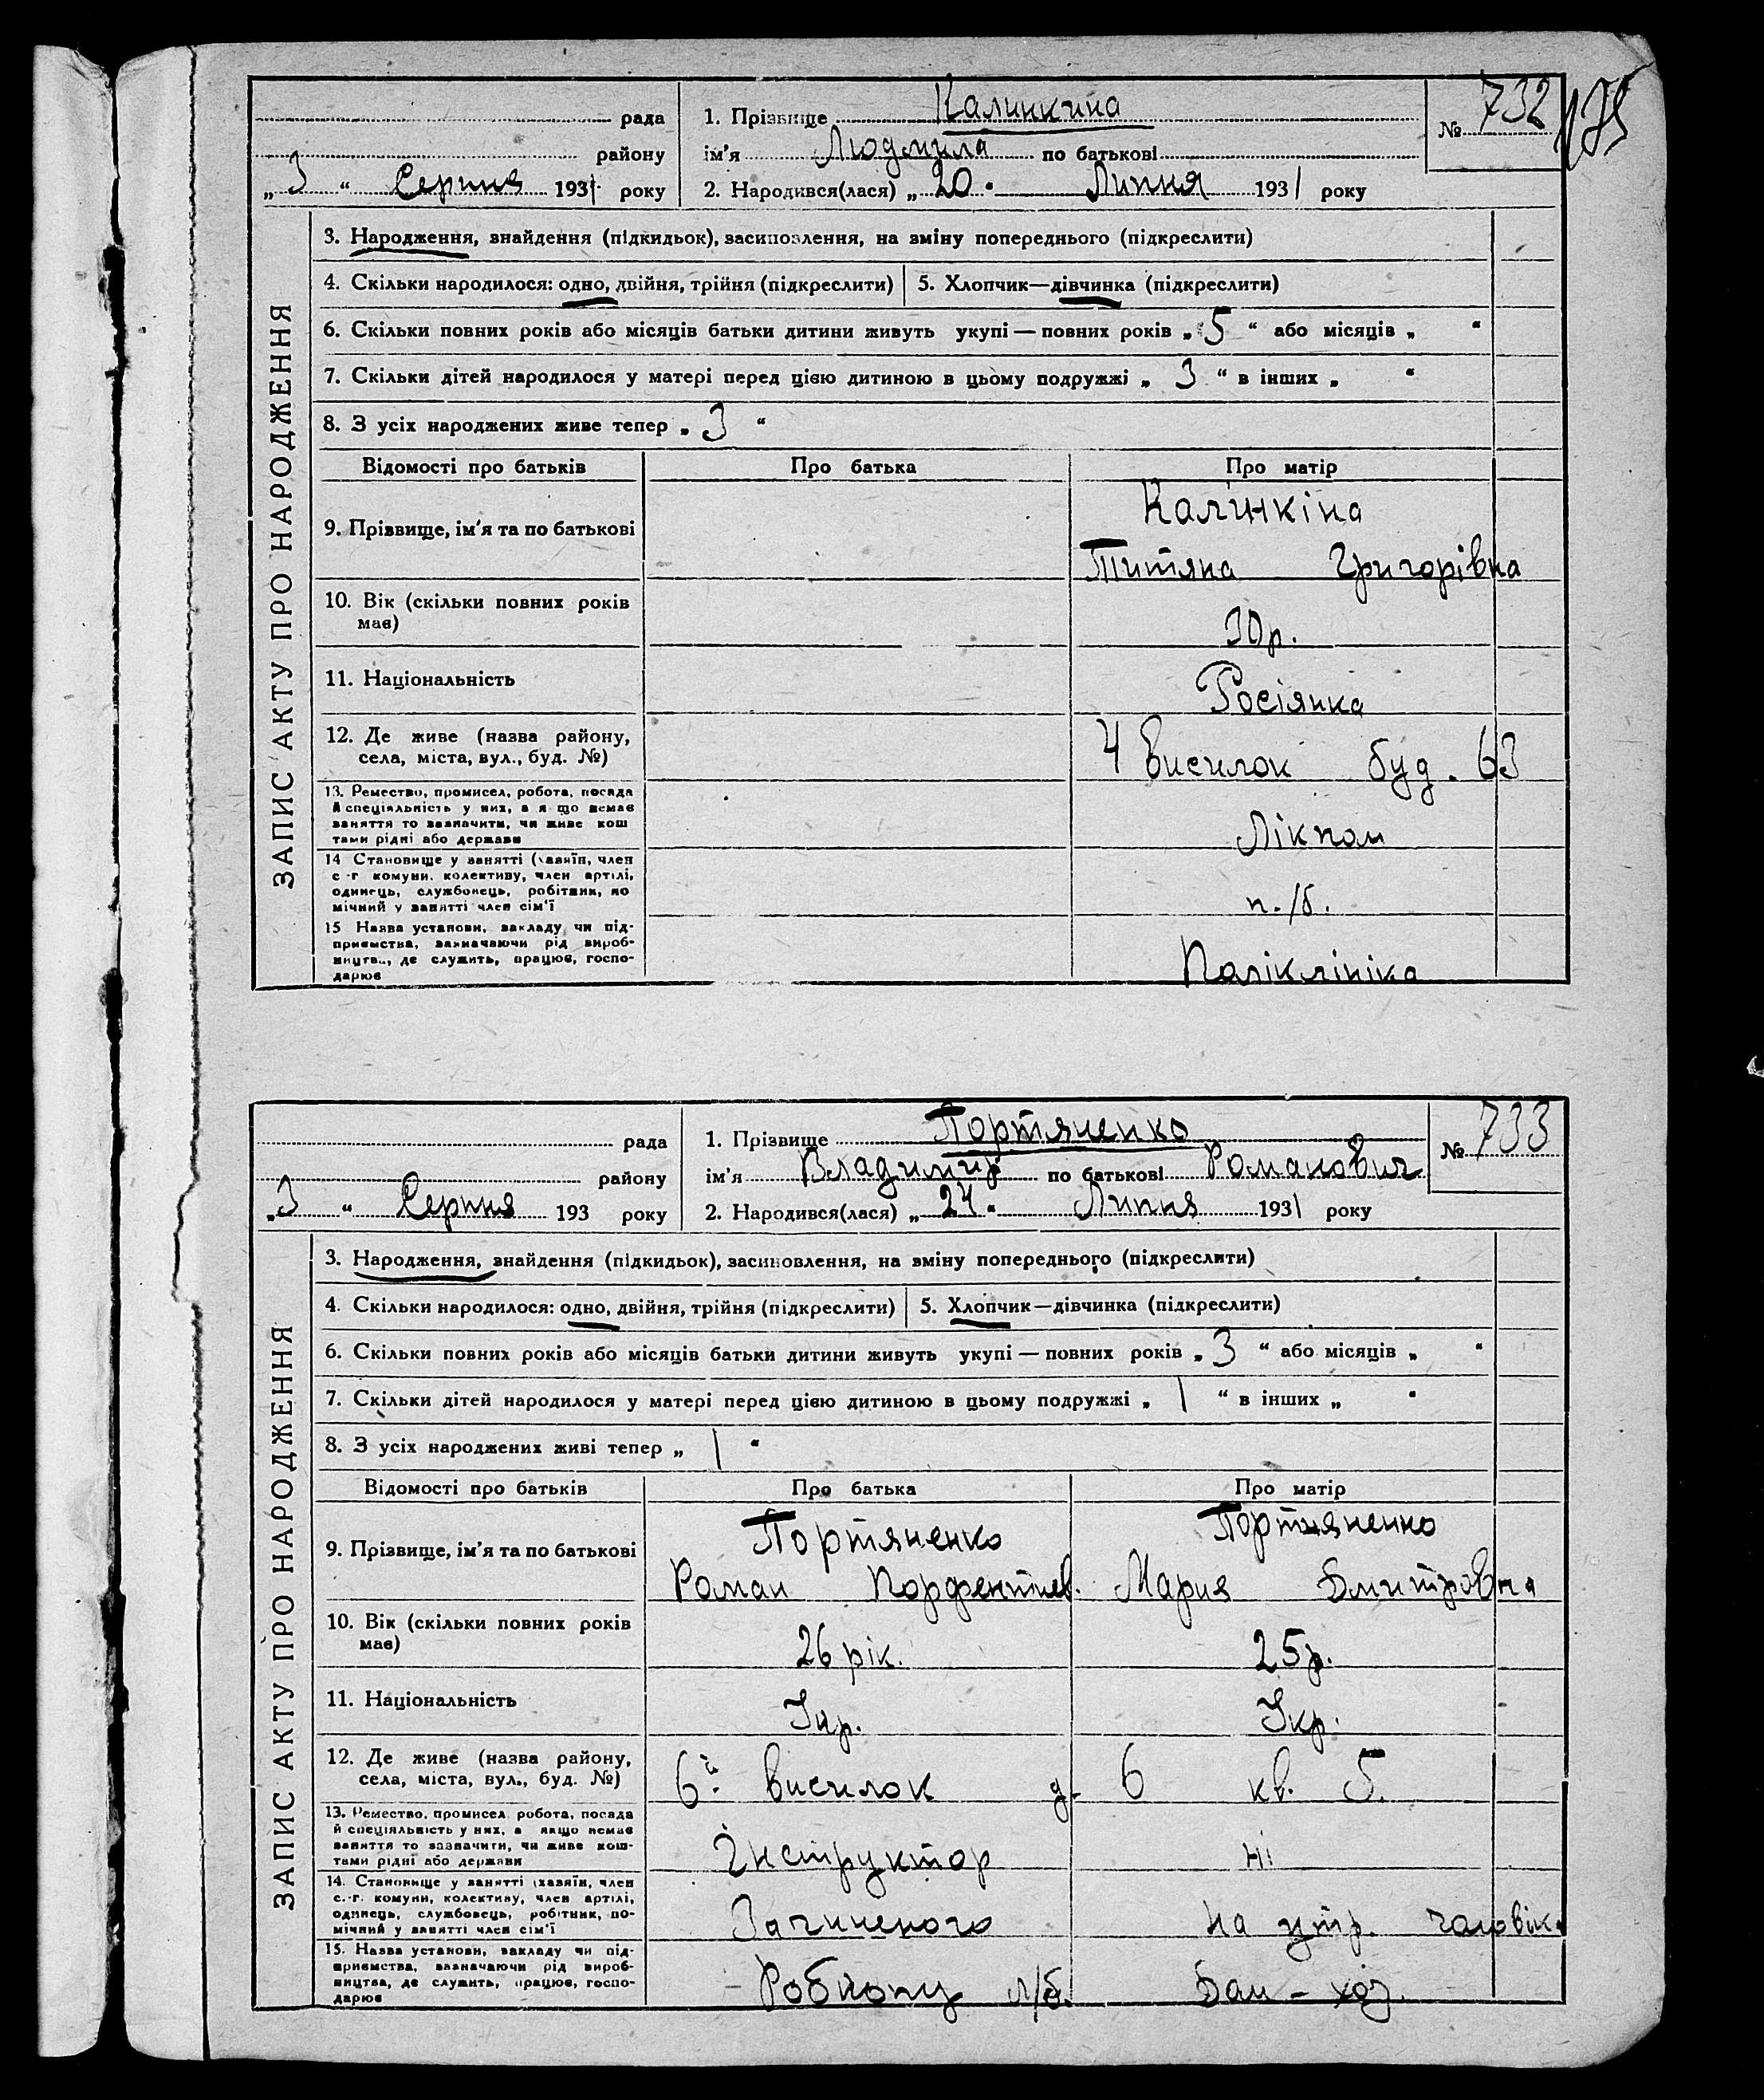 рада
1. Прізвище Калинкина
№ 732
175
району
ім'я Людмила по батькові
„3“ Серпня 1931 року
2. Народився(лася) „20“ Липня 1931 року
ЗАПИС АКТУ ПРО НАРОДЖЕННЯ
3. Народження, знайдення (підкидьок), засиновлення, на зміну попереднього (підкреслити)
4. Скільки народилося: одно, двійня, трійня (підкреслити)
5. Хлопчик—дівчинка (підкреслити)
6. Скільки повних років або місяців батьки дитини живуть укупі — повних років „5“ або місяців „ “
7. Скільки дітей народилося у матері перед цією дитиною в цьому подружжі „3“ в інших „ “
8. З усіх народжених живе тепер „3“
Відомості про батьків
Про батька
Про матір
9. Прізвище, ім'я та по батькові
Калінкіна
Титяна Григорівна
10. Вік (скільки повних років
має)
30р.
11. Національність
Росіянка
12. Де живе (назва району,
села, міста, вул., буд. №)
4 висилок буд. 63
13. Ремество, промисел, робота, посада
й спеціяльність у них, а якщо немає
заняття то зазначити, чи живе кош
тами рідні або держави
Лікпом
14 Становище у занятті (хазяїн, член
с.-г комуни, колективу, член артілі,
одинець, службовець, робітник, по
мічний у занятті член сім'ї
п./б.
15 Назва установи, закладу чи під-
приємства, зазначаючи рід вироб-
ництва, де служить, працює, госпо-
дарює
Поліклініка
рада
1. Прізвище Портяненко
№ 733
району
ім'я Владимир по батькові Романович
„3“ Серпня 193 року
2. Народився(лася) „24“ Липня 1931 року
ЗАПИС АКТУ ПРО НАРОДЖЕННЯ
3. Народження, знайдення (підкидьок), засиновлення, на зміну попереднього (підкреслити)
4. Скільки народилося: одно, двійня, трійня (підкреслити)
5. Хлопчик—дівчинка (підкреслити)
6. Скільки повних років або місяців батьки дитини живуть укупі — повних років „3“ або місяців „ “
7. Скільки дітей народилося у матері перед цією дитиною в цьому подружжі „1“ в інших „ “
8. З усіх народжених живі тепер „1“
Відомості про батьків
Про батька
Про матір
9. Прізвище, ім'я та по батькові
Портяненко
Роман Порфентиев.
Портяненко
Мария Дмитровна
10. Вік (скільки повних років
має)
26 рік.
25р.
11. Національність
Укр.
Укр.
12. Де живе (назва району,
села, міста, вул., буд. №)
6й висилок д. 6 кв. 5.
13. Ремество, промисел, робота, посада
й спеціяльність у них, а якщо немає
заняття то зазначити, чи живе кош-
тами рідні або держави
Інструктор
ні
14. Становище у занятті (хазяїн, член
с.-г. комуни, колективу, член артілі,
одинець, службовець, робітник, по-
мічний у занятті член сім'ї
на утр. чоловіка
15. Назва установи, закладу чи під-
приємства, зазначаючи рід вироб-
ництва, де служить, працює, госпо-
дарює
Робкопу п/б.
Дом-хоз.